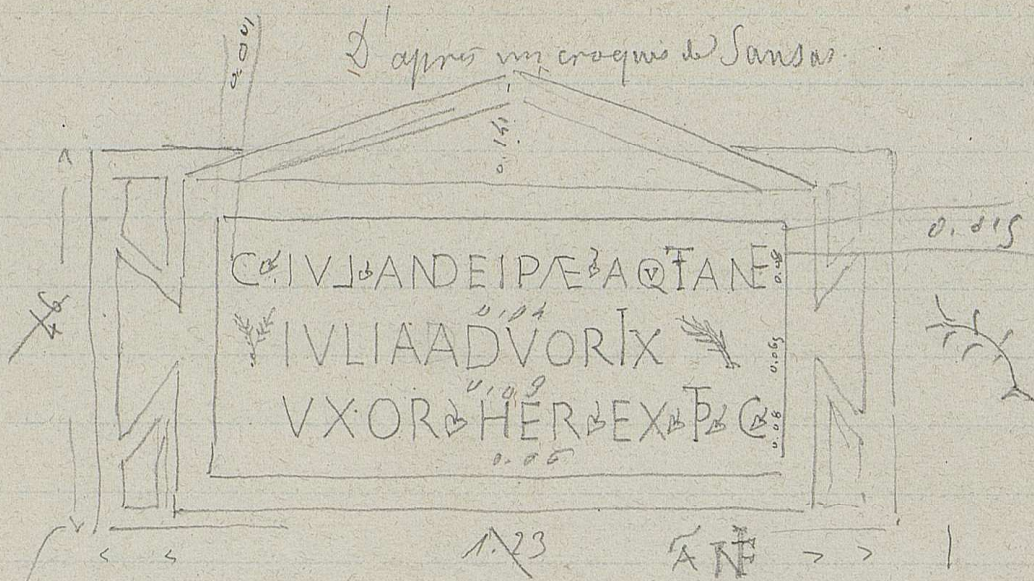 D'après un croquis de Sansas.
0.001
0.151
0.015
C IVL ANDEIPÆ AQVTANE
0.04
IVLIA ADVORIX
0.065
0.09
VXOR HER EX TP C
0.08
0.06
46
1.23
A NE